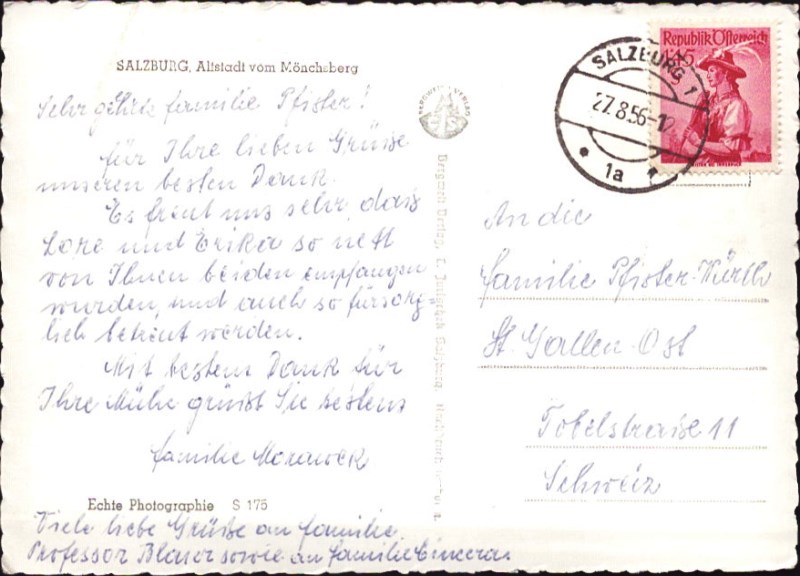 SALZBURG, Altstadt vom Mönchsberg
Sehr geehrte Familie Pfister!
für Ihre lieben Grüße
unseren besten Dank.
Es freut uns sehr, daß
Lore und Erika so nett
von Ihnen beiden empfangen
wurden, und auch so fürsorg=
lich betreut werden.
Mit bestem Dank für
Ihre Mühe grüßt Sie bestens
Familie Morawek
Echte Photographie S 175
Viele liebe Grüße an Familie
Professor Blaser sowie an Familie
BERGWELT VERLAG
Bergwelt Verlag, C. Jurischek Salzburg.
Republik Österreich
1.45
SALZBURG 1
27.8.56-12
1a
An die
Familie Pfister-Würth
St. Gallen-Ost
Tobelstraße 11
Schweiz